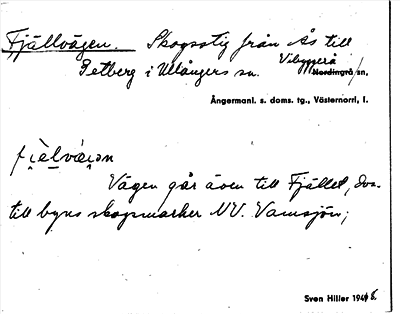 Fjällvägen. Skogsstig från Ås till
Getberg i Ullångers sn. Vibyggerå
Nordingrå sn,
Ångermanl. s. doms. tg., Västernorrl, l.
Vägen går även till Fjället, dvs.
till byns skogsmarker NV. Vamsjön;
Sven Hiller 1946